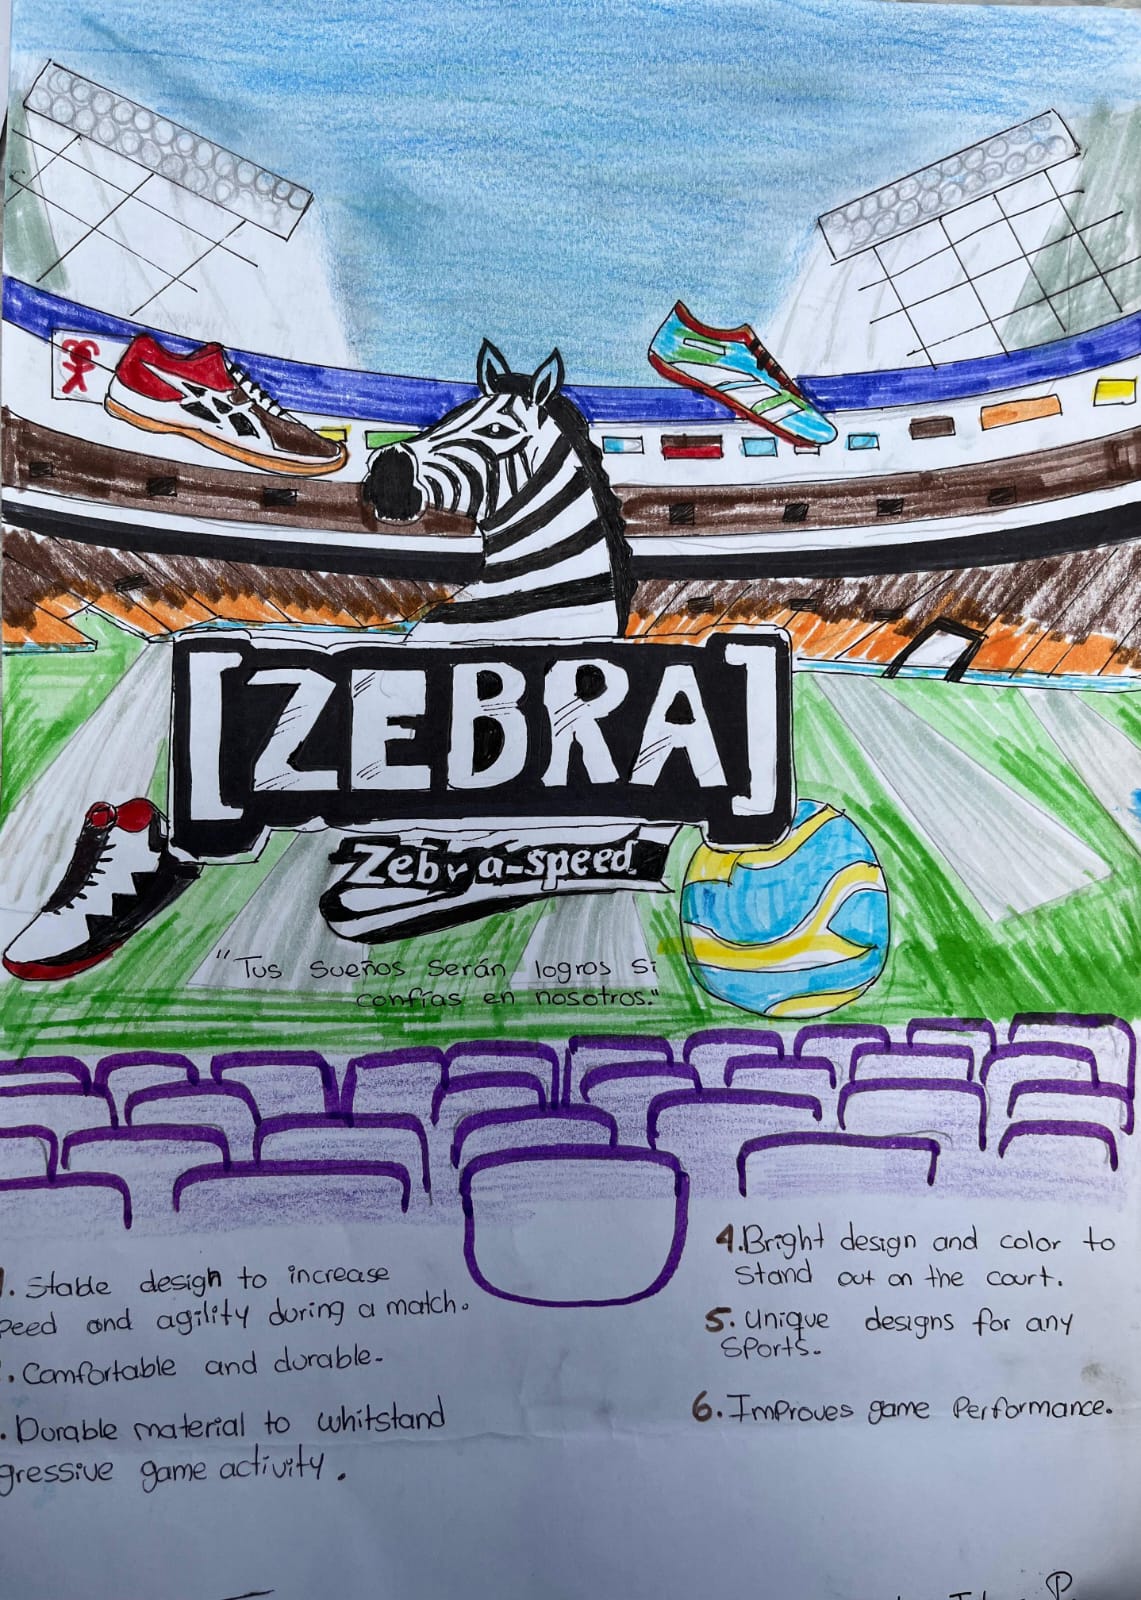 [ZEBRA]
Zebra-speed
"Tus sueños serán logros si
confías en nosotros."
1. Stable design to increase
peed and agility during a match.
. Comfortable and durable.
. Durable material to whitstand
gressive game activity.
4. Bright design and color to
stand out on the court.
5. Unique designs for any
sports.
6. Improves game performance.